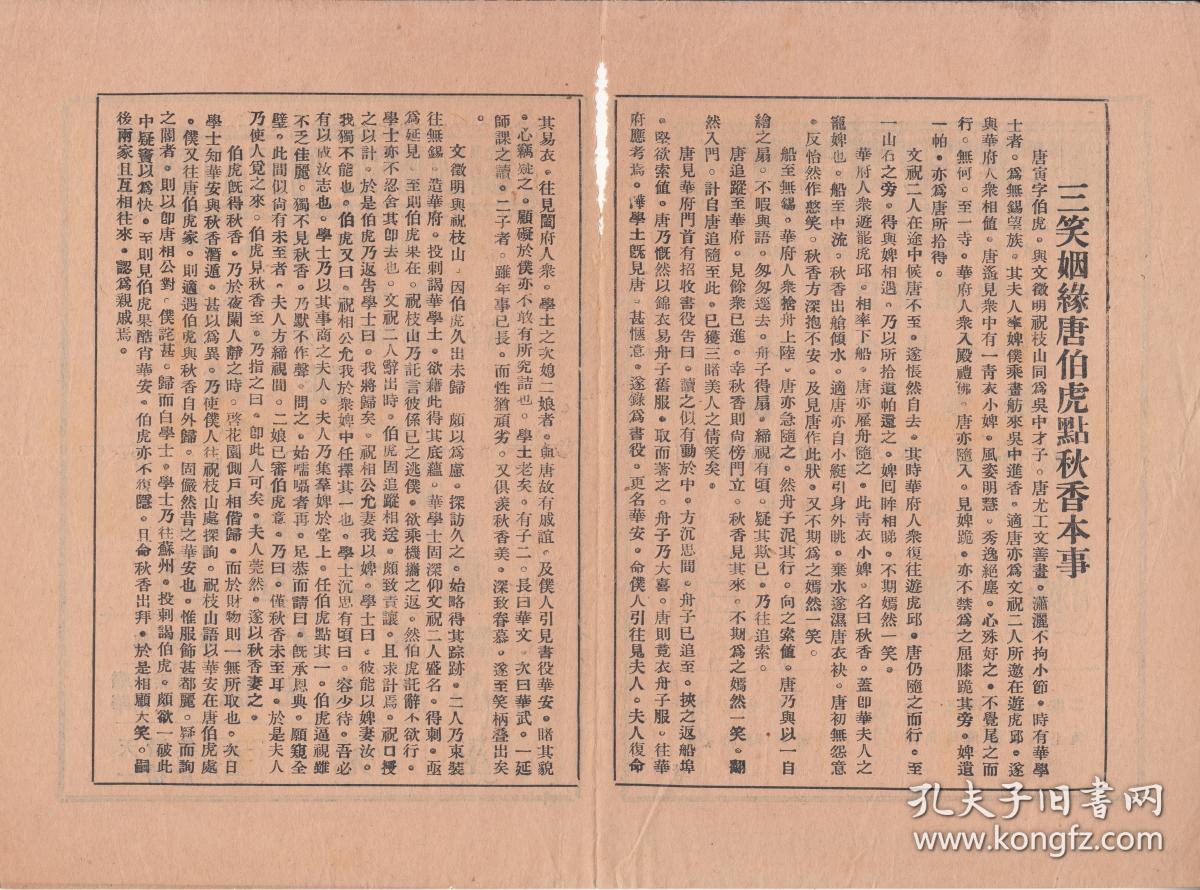 三笑姻緣唐伯虎點秋香本事
唐寅字伯虎。與文徵明祝枝山同為吳中才子。唐尤工文善畫。瀟灑不拘小節。時有華學
士者。為無錫望族。其夫人率婢僕乘畫舫來吳中進香。適唐亦為文祝二人所邀在遊虎邱。遂
與華府人衆相值。唐遙見衆中有一青衣小婢。風姿明慧。秀逸絕塵。心殊好之。不覺尾之而
行。無何。至一寺。華府人衆入殿禮佛。唐亦隨入。見婢跪。亦不禁為之屈膝跪其旁。婢遺
一帕。亦為唐所拾得。
文祝二人在途中候唐不至。遂悵然自去。其時華府人衆復往遊虎邱。唐仍隨之而行。至
一山石之旁。得與婢相遇。乃以所拾遺帕還之。婢回眸相睇。不期嫣然一笑。
華府人衆遊罷虎邱。相率下船。唐亦雇舟隨之。此青衣小婢。名曰秋香。蓋卽華夫人之
寵婢也。船至中流。秋香出艙傾水。適唐亦自小艇引身外眺。乗水遂濕唐衣袂。唐初無怨意
。反怡然作憨笑。秋香方深抱不安。及見唐作此狀。又不期為之嫣然一笑。
船至無錫。華府人衆捨舟上陸。唐亦急隨之。然舟子泥其行。向之索値。唐乃與以一自
繪之扇。不暇與語。匆匆逕去。舟子得扇。締視有頃。疑其欺已。乃往追索。
唐追蹤至華府。見餘衆已進。幸秋香則尙傍門立。秋香見其來。不期為之嫣然一笑。翩
然入門。計自唐追隨至此。已獲三睹美人之倩笑矣。
唐見華府門首有招收書役告曰。讀之似有動於中。方沉思間。舟子已追至。挾之返船埠
。堅欲索値。唐乃慨然以錦衣易舟子舊服。取而著之。舟子乃大喜。唐則竟衣舟子服。往華
府應考焉。華學士旣見唐。甚愜意。遂錄為書役。更名華安。命僕人引往見夫人。夫人復命
其易衣。往見闔府人衆。學士之次媳二娘者。與唐故有戚誼。及僕人引見書役華安。睹其貌
。心竊疑之。顧礙於僕亦不敢有所究詰也。學士老矣。有子二。長曰華文。次曰華武。一延
師課之讀。二子者。雖年事已長。而性猶頑劣。又俱羨秋香美。深致眷慕。遂至笑柄叠出矣
。
文徵明與祝枝山。因伯虎久出未歸　頗以為慮。探訪久之。始略得其踪跡。二人乃束裝
往無錫。造華府。投刺謁華學士。欲藉此得其底蘊。華學士固深仰文祝二人盛名。得刺。亟
為延見　至則伯虎果在。祝枝山乃託言彼係已之逃僕。欲乘機攜之返。然伯虎託辭不欲行。
學士亦不忍舍其卽去也。文祝二人辭出時。伯虎固追蹤相送。頗致責讓。且求計焉。祝口授
之以計。於是伯虎乃返告學士曰。我將歸矣。祝相公允妻我以婢。學士曰。彼能以婢妻汝。
我獨不能也。伯虎又曰。祝相公允我於衆婢中任擇其一也。學士沉思有頃曰。容少待。吾必
有以成汝志也。學士乃以其事商之夫人。夫人乃集羣婢於堂上。任伯虎點其一。伯虎逼視雖
不乏佳麗。獨不見秋香。乃默不作聲。問之。始嚅囁者再。足恭而請曰。旣承恩典。願窺全
璧。此間似尙有未至者。夫人方締視間。二娘已審伯虎意。乃曰。僅秋香未至耳。於是夫人
乃使人覓之來。伯虎見秋香至。乃指之曰。卽此人可矣。夫人莞然。遂以秋香妻之。
伯虎旣得秋香。乃於夜闌人靜之時。啓花園側戶相偕歸。而於財物則一無所取也。次日
學士知華安與秋香潛遁。甚以為異。乃使僕人往祝枝山處探詢。祝枝山語以華安在唐伯虎處
。僕又往唐伯虎家。則適遇伯虎與秋香自外歸。固儼然昔之華安也。惟服飾甚都麗。疑而詢
之閽者。則以卽唐相公對。僕詫甚。歸而白學士。學士乃往蘇州。投刺謁伯虎。頗欲一破此
中疑竇以為快。至則見伯虎果酷肖華安。伯虎亦不復隱。且命秋香出拜。於是相顧大笑。嗣
後兩家且互相往來。認為親戚焉。
孔夫子旧书网
www.kongfz.com